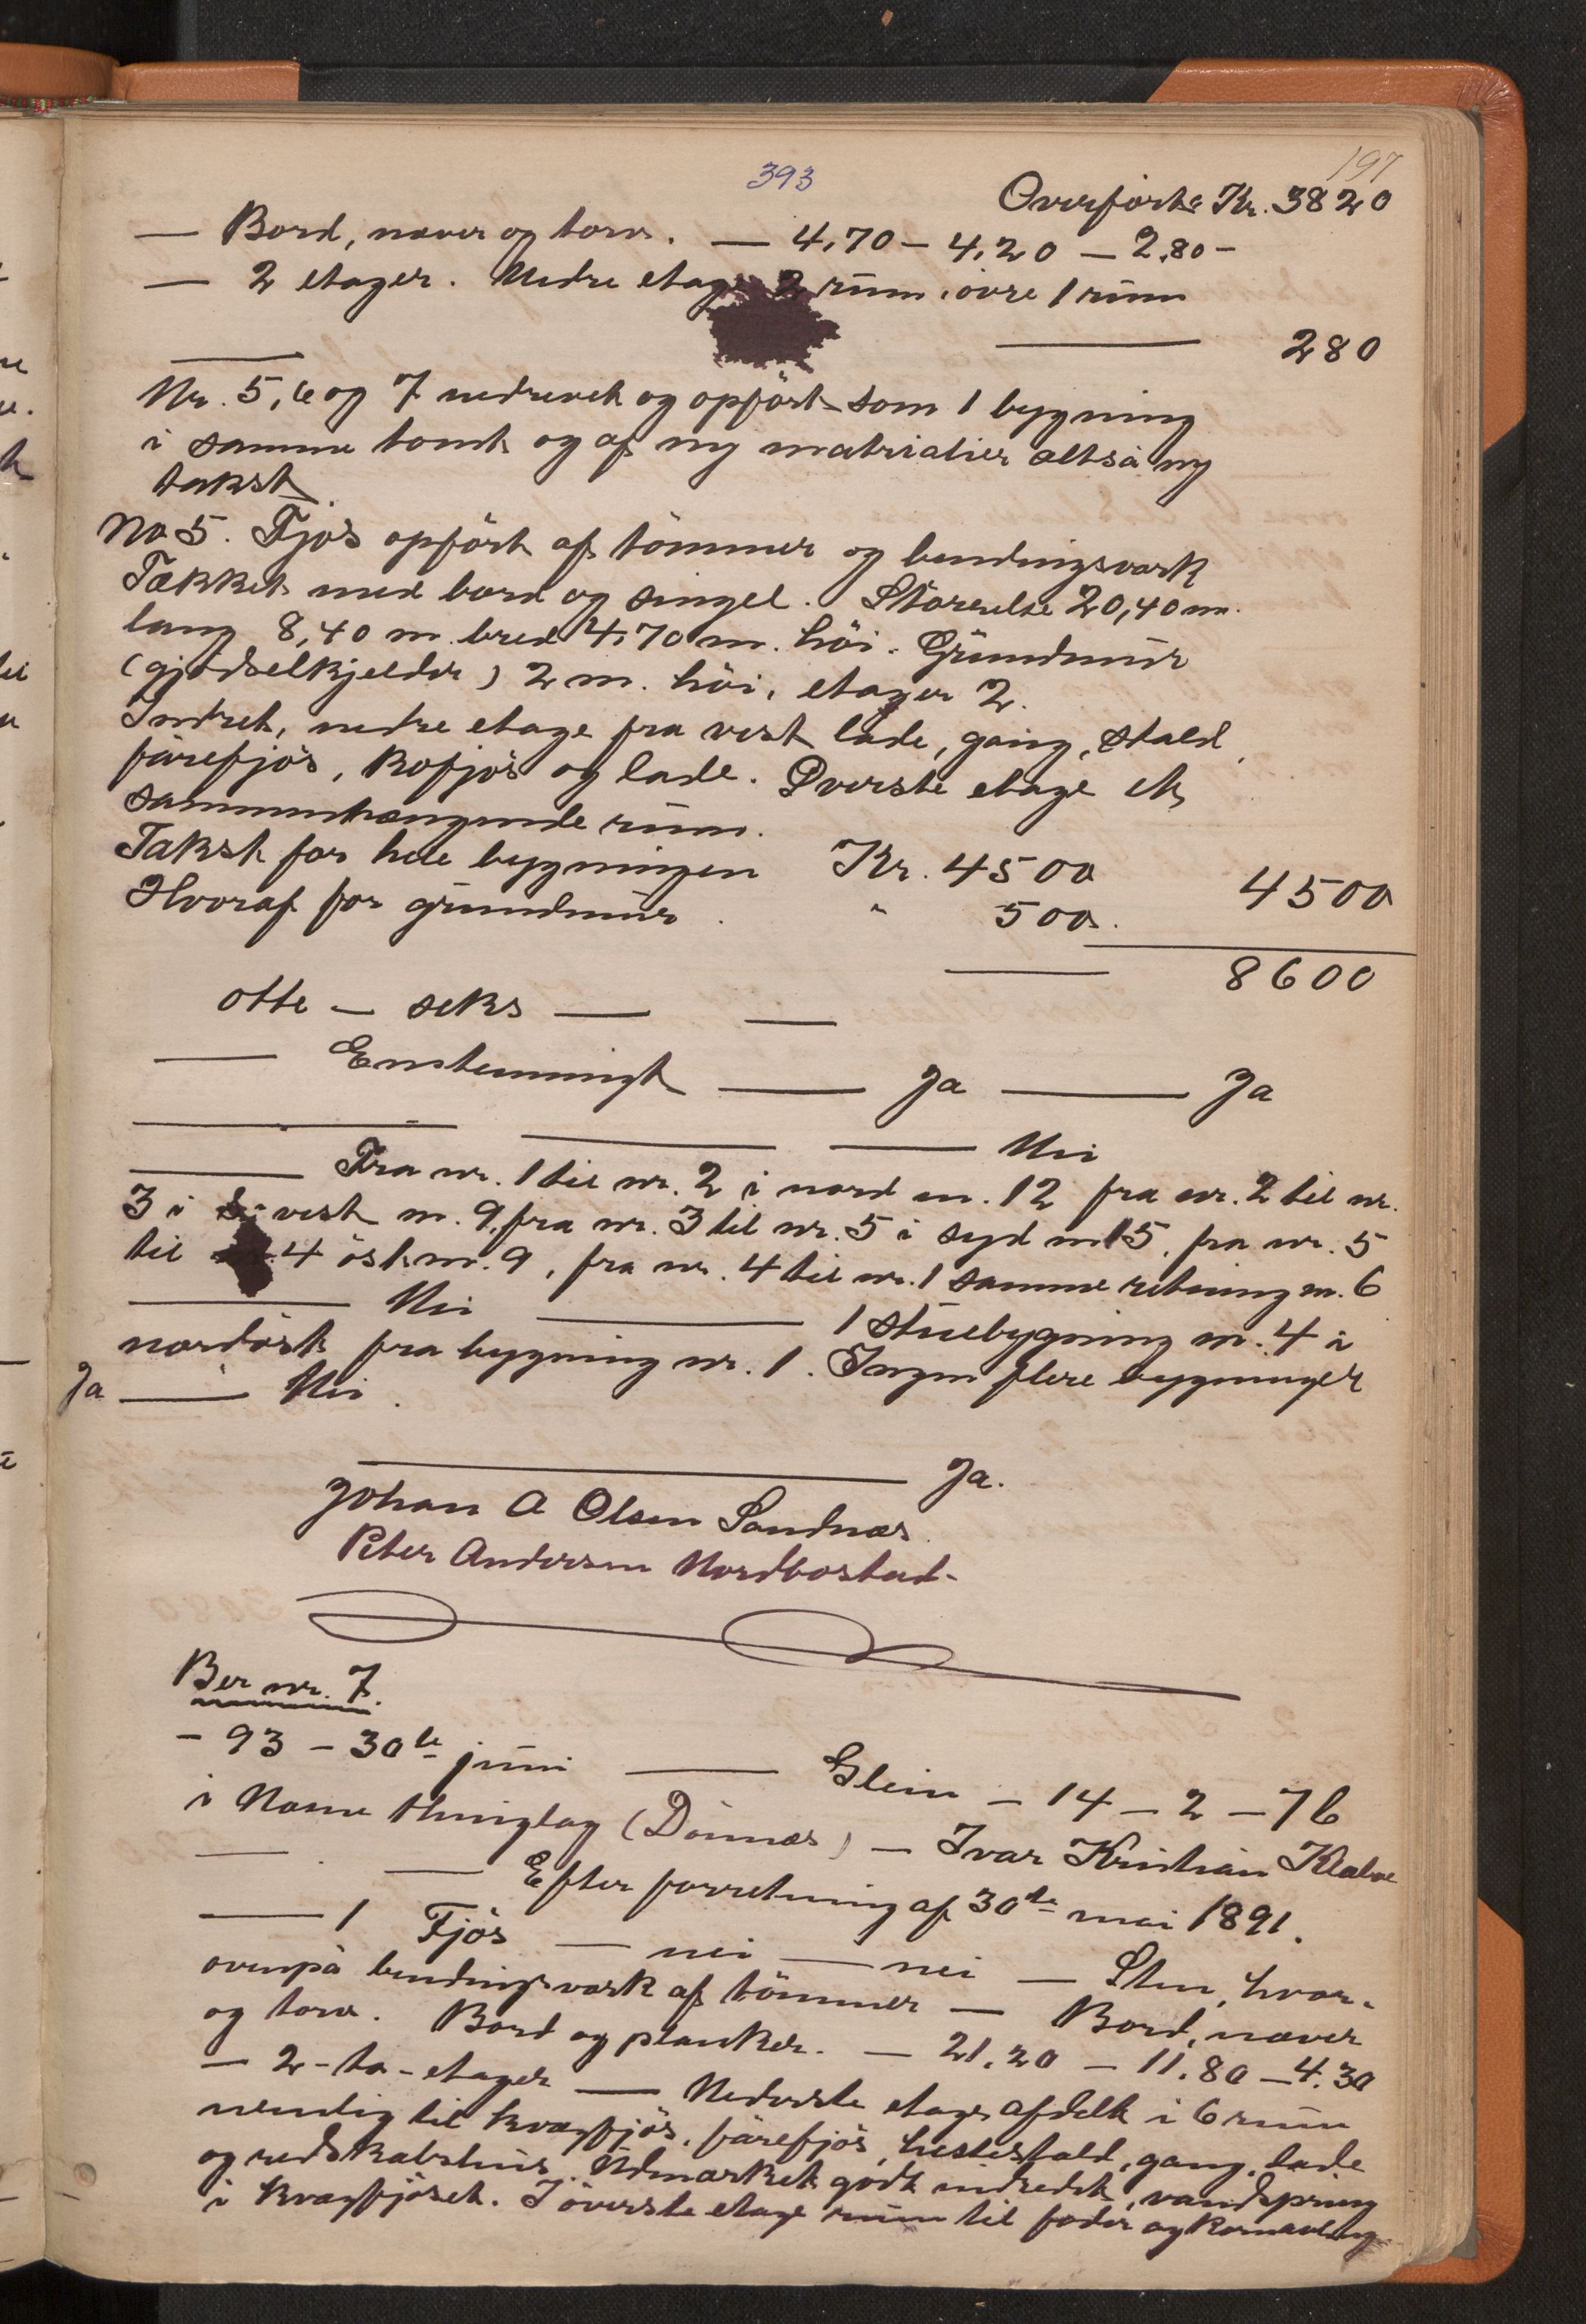 393
197
Overført Kr. 3820
— Bord, næver og torv. — 4,70 — 4,20 — 2,80 —
— 2 etager. Nedre etage 2 rum, övre 1 rum
280
Nr. 5, 6 og 7 nedrevet og opfört som 1 bygning
i samme tomt og af ny matrialier altså ny
takst.
No 5. Fjøs opfört af tömmer og bendingsværk
Tækket med bord og singel. Størrelse 20,40 m.
lang 8,40 m. bred 4,70 m. höi. Grundmur
(gjødselkjelder) 2 m. höi, etager 2.
Indret, nedre etage fra vest lade, gang, stald,
fårefjös, Kofjös og lade. Øverste etage et
sammenhængende rum.
Takst for hele bygningen Kr. 4500 4500
Hvoraf for grundmur. " 500.
8600
otte — seks — —
— Enstemmigt — Ja — Ja
— — — Nei
— Fra nr. 1 til nr. 2 i nord m. 12 fra nr. 2 til nr.
3 i vest m. 9, fra nr. 3 til nr. 5 i syd m 15, fra nr. 5
til 4 öst m. 9, fra nr. 4 til nr. 1 samme retning m. 6
— Nei — 1 stuebygning m. 4 i
nordöst fra bygning nr. 1. Ingen flere bygninger
Ja — Nei.
— Ja.
Johan A Olsen Sandnæs.
Peter Andersen Nordbostad.
Ber nr. 7.
— 93 — 30te juni — Glein — 14 — 2 — 76
i Næsne thinglag (Dönnæs) — Ivar Kristian
— — Efter forretning af 30te mai 1891.
— 1 Fjös — nei — nei — Sten, hvor-
ovenpå bendingsværk af tömmer — Bord, næver
og torv. Bord og planker. — 21.20 — 11.80 — 4.30
— 2 - to - etager — Nederste etage afdelt i 6 rum
nemlig til kvægfjös, fårefjös, hestestald, gang, lade
og redskabshus. Udmærket godt indredet, vandspring
i kvægfjöset. I överste etage rum til foder og kornavling